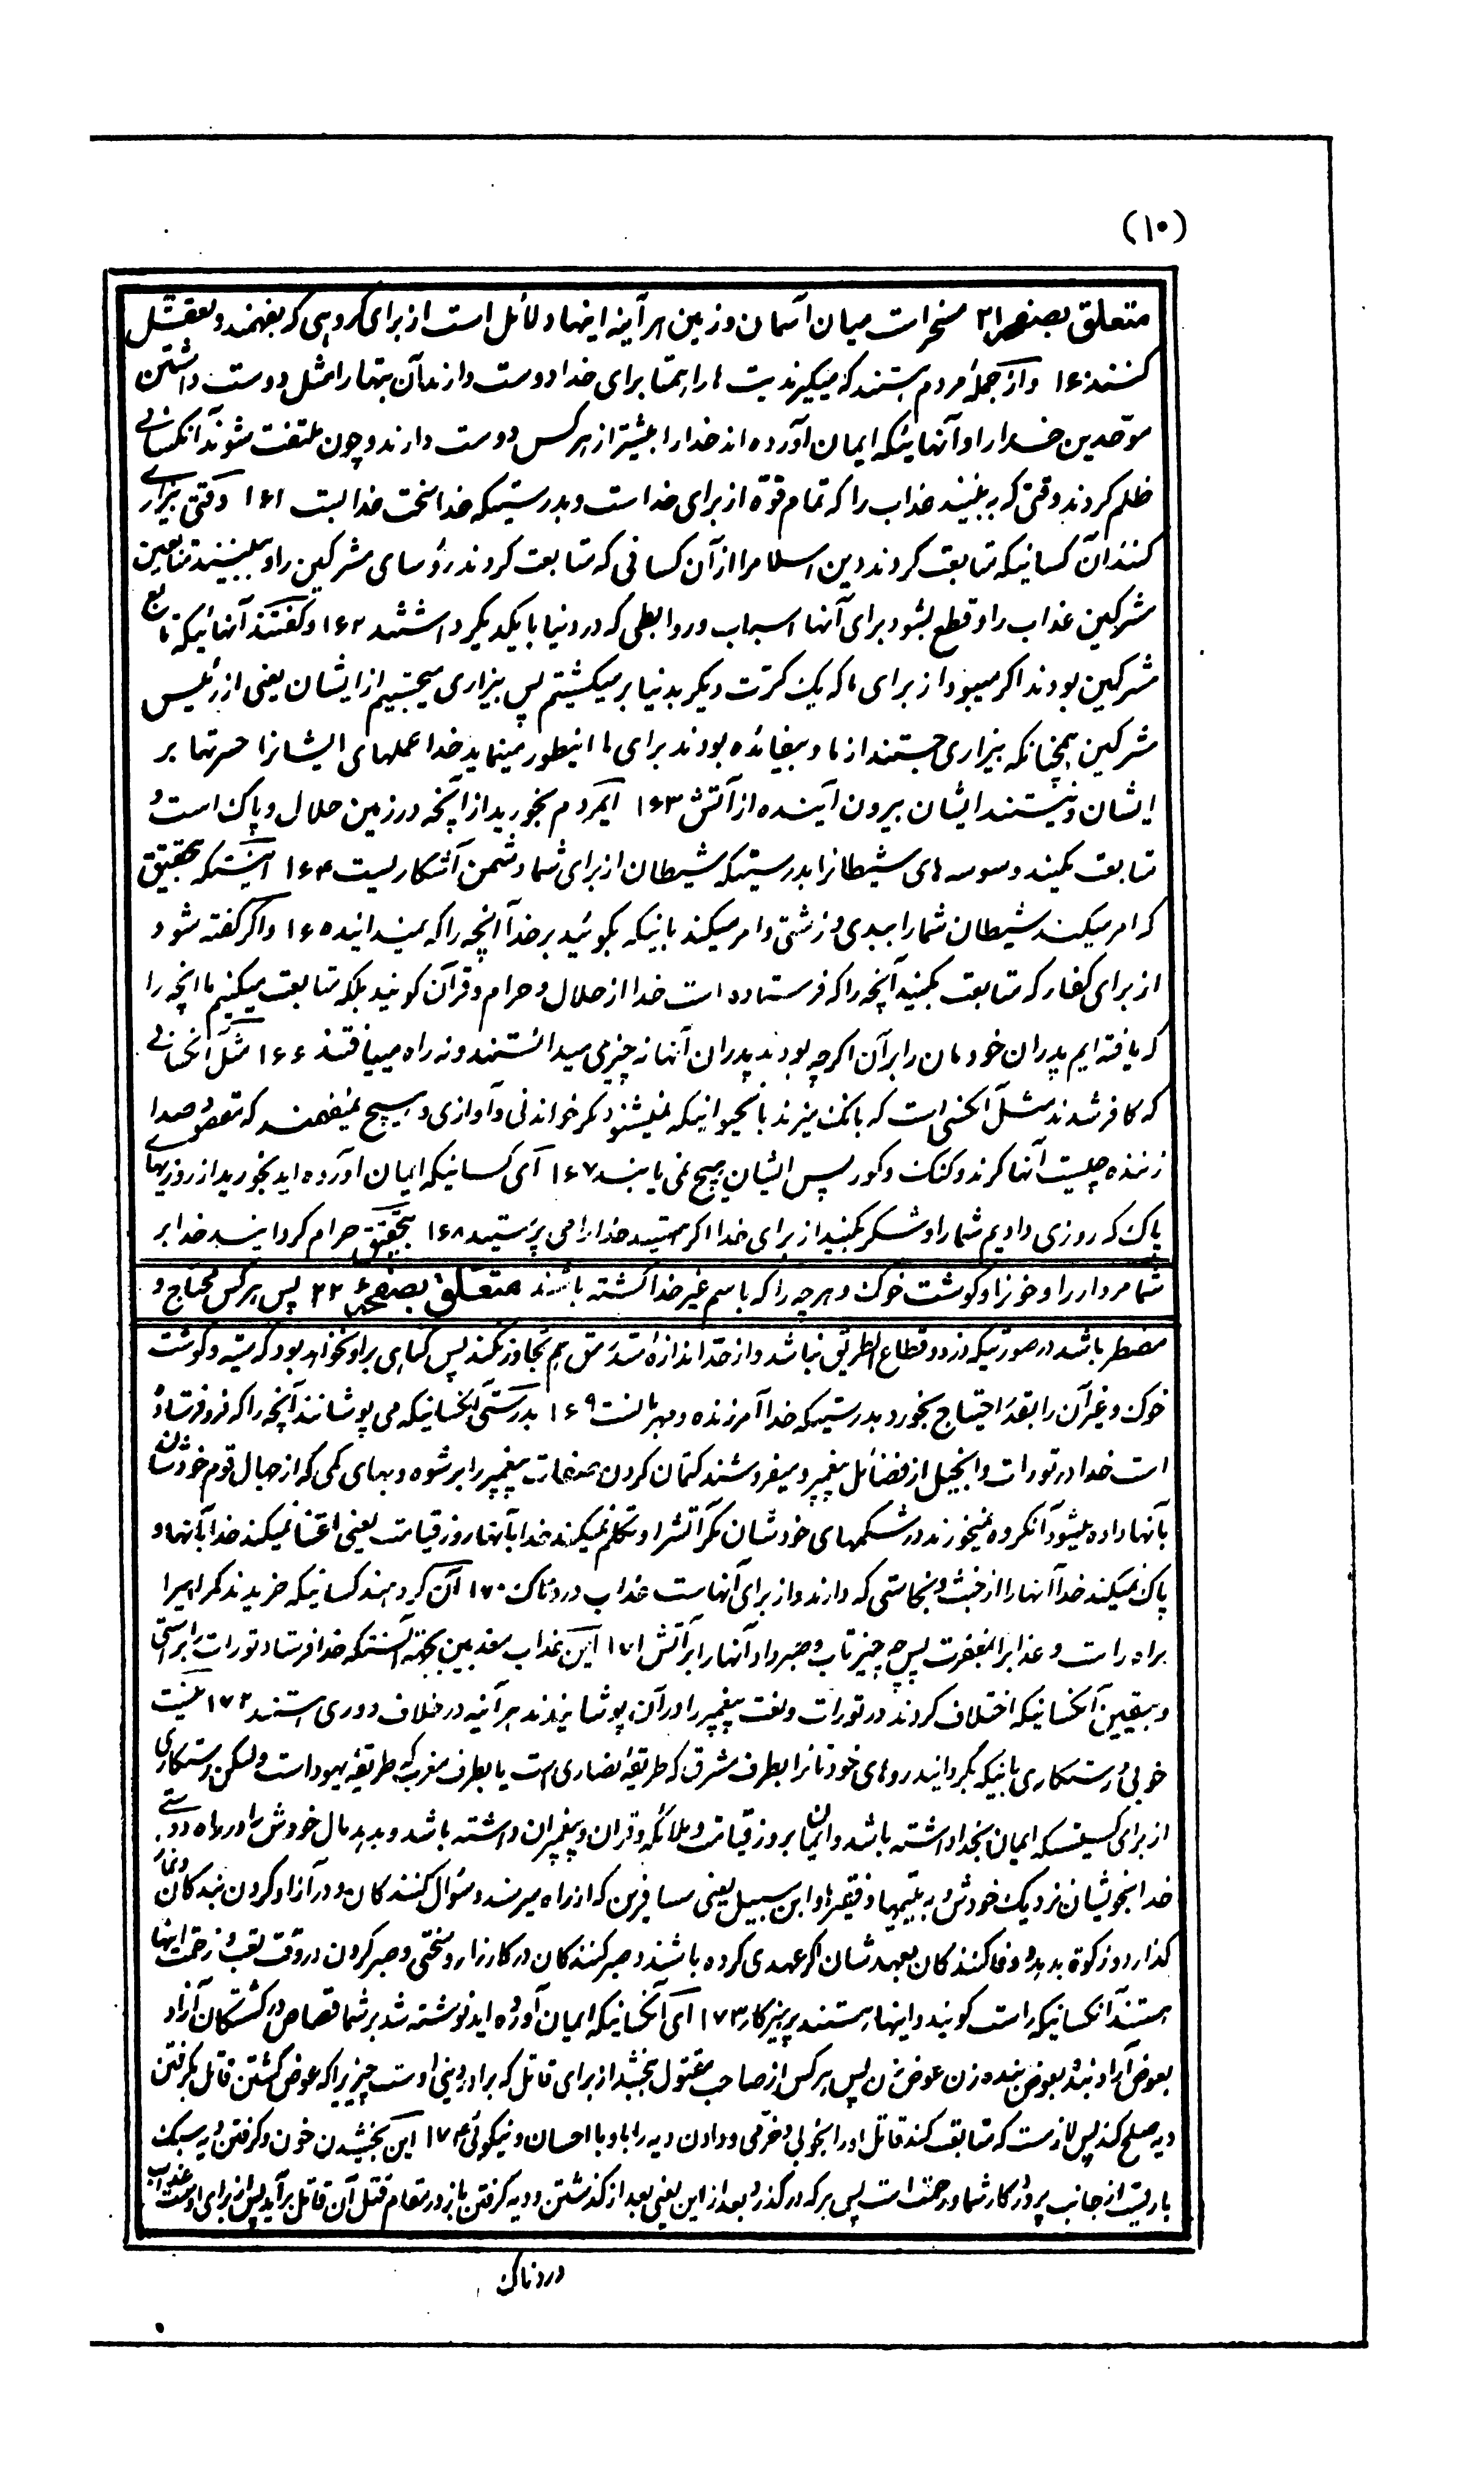 (۱۰)
متعلق بصفحه ۲۱ مسخرات میان آسمان و زمین هر آینه اینها دلائل است از برای گروهی که بفهمند و تعقل
کنند ۱۶۰ و از جمله مردم هستند که میگیرند بت ها را همتا برای خدا دوست دارند آن بتها را مثل دوست داشتن
موحدین خدا را و آنهائیکه ایمان آورده اند خدا را بیشتر از هر کس دوست دارند و چون ملتفت شوند آنکسانی
ظلم کردند وقتی که به بینند عذاب را که تمام قوّه از برای خداست و بدرستیکه خدا سخت عذابست ۱۶۱ وقتی بیزاری
کنند آن کسانیکه متابعت کردند دین اسلام را از آن کسانی که متابعت کردند رؤسای مشرکین را و ببینند متابعین
مشرکین عذاب را و قطع بشود برای آنها اسباب و روابطی که در دنیا با یکدیگر داشتند ۱۶۲ و گفتند آنهائیکه تابع
مشرکین بودند اگر میبود از برای ما که یک کرّت دیگر بدنیا بر میگشتیم پس بیزاری میجستیم از ایشان یعنی از رئیس
مشرکین همچنانکه بیزاری جستند از ما و بیفایده بودند برای ما اینطور مینماید خدا عملهای ایشانرا حسرتها بر
ایشان و نیستند ایشان بیرون آینده از آتش ۱۶۳ ایمردم بخورید از آنچه در زمین حلال و پاک است و
متابعت نکنید وسوسه های شیطانرا بدرستیکه شیطان از برای شما دشمن آشکاریست ۱۶۴ اینستکه بتحقیق
که امر میکند شیطان شما را ببدی و زشتی و امر میکند باینکه بگوئید بر خدا آنچه را که نمیدانید ۱۶۵ و اگر گفته شود
از برای کفار که متابعت بکنید آنچه را که فرستاده است خدا از حلال و حرام و قرآن گویند بلکه متابعت میکنیم ما آنچه را
که یافته ایم پدران خودمان را بر آن اگرچه بودند پدران آنها نه چیزی میدانستند و نه راه مییافتند ۱۶۶ مثل آنکسانی
که کافر شدند مثل آنکسی است که بانگ میزند بآنحیوانیکه نمیشنود مگر خواندنی و آوازی و هیچ نمیفهمند که مقصود صدا
زننده چیست آنها کرند و گنگ و کور پس ایشان هیچ نمی یابند ۱۶۷ ای کسانیکه ایمان آورده اید بخورید از روزیهای
پاک که روزی دادیم شما را و شکر بکنید از برای خدا اگر هستید خدا را می پرستید ۱۶۸ بتحقیق حرام گردانید خدا بر
شما مردار را و خونرا و گوشت خوک و هرچه را که باسم غیر خدا کشته باشند متعلق بصفحه ۲۲ پس هر کس محتاج و
مضطر باشد در صورتیکه دزد و قطاع الطریق نباشد و از حدّ اندازه سدّ رمق هم تجاوز نکند پس گناهی بر او نخواهد بود که میته و گوشت
خوک و غیر آن را بقدر احتیاج بخورد بدرستیکه خدا آمرزنده و مهربانست ۱۶۹ بدرستی آنکسانیکه می پوشانند آنچه را که فرو فرستاده
است خدا در تورات و انجیل از فضائل پیغمبر و میفروشند کتمان کردن صفات پیغمبر را برشوه و بهای کمی که از جهال قوم خودشان
بآنها داده میشود آنگروه نمیخورند در شکمهای خودشان مگر آتشرا و تکلم نمیکند خدا بآنها روز قیامت یعنی اعتنا نمیکند خدا بآنها و
پاک نمیکند خدا آنها را از خبث و نجاستی که دارند و از برای آنهاست عذاب دردناک ۱۷۰ آن گروهند کسانیکه خریدند گمراهیرا
براه راست و عذابرا بمغفرت پس چه چیز تاب و صبر داد آنها را بر آتش ۱۷۱ این عذاب معذبین بجهة آنستکه خدا فرستاد تورات را براستی
و بیقین آنکسانیکه اختلاف کردند در تورات و نعت پیغمبر را در آن پوشانیدند هر آینه در خلاف دوری هستند ۱۷۲ نیست
خوبی و رستکاری باینکه بگردانید روهای خودتانرا بطرف مشرق که طریقه نصاری است یا بطرف مغرب که طریقه یهود است ولیکن رستکاری
از برای کسیستکه ایمان بخدا داشته باشد و ایمان بروز قیامت و ملائکه و قرآن و پیغمبران داشته باشد و بدهد مال خودش را در راه دوستی
خدا بخویشان نزدیک خودش و به یتیمها و فقیرها و ابن سبیل یعنی مسافرین که از راه میرسند و سؤال کنندگان و در آزاد کردن بندگان و نماز
گذارد و زکوة بدهد و وفا کنندگان بعهدشان اگر عهدی کرده باشند و صبر کنندگان در کارزار و سختی و صبر کردن در وقت تعب و زحمت اینها
هستند آنکسانیکه راست گویند و اینها هستند پرهیزکار ۱۷۳ ای آنکسانیکه ایمان آورده اید نوشته شد بر شما قصاص در کشتگان آزاد
بعوض آزاد بنده بعوض بنده زن عوض زن پس هر کس از صاحب مقتول بخشید از برای قاتل که برادر دینی اوست چیزیرا که عوض کشتن قاتل بگرفتن
دیه صلح کند پس لازمست که متابعت کند قاتل او را بخوبی و خرّمی و دادن دیه را باو با احسان و نیکوئی ۱۷۴ این بخشیدن خون و گرفتن دیه سبک
باریست از جانب پروردگار شما و رحمت است پس هر که در گذرد بعد از این یعنی بعد از گذشتن و دیه گرفتن باز در مقام قتل آن قاتل برآید پس از برای اوست عذاب
دردناک